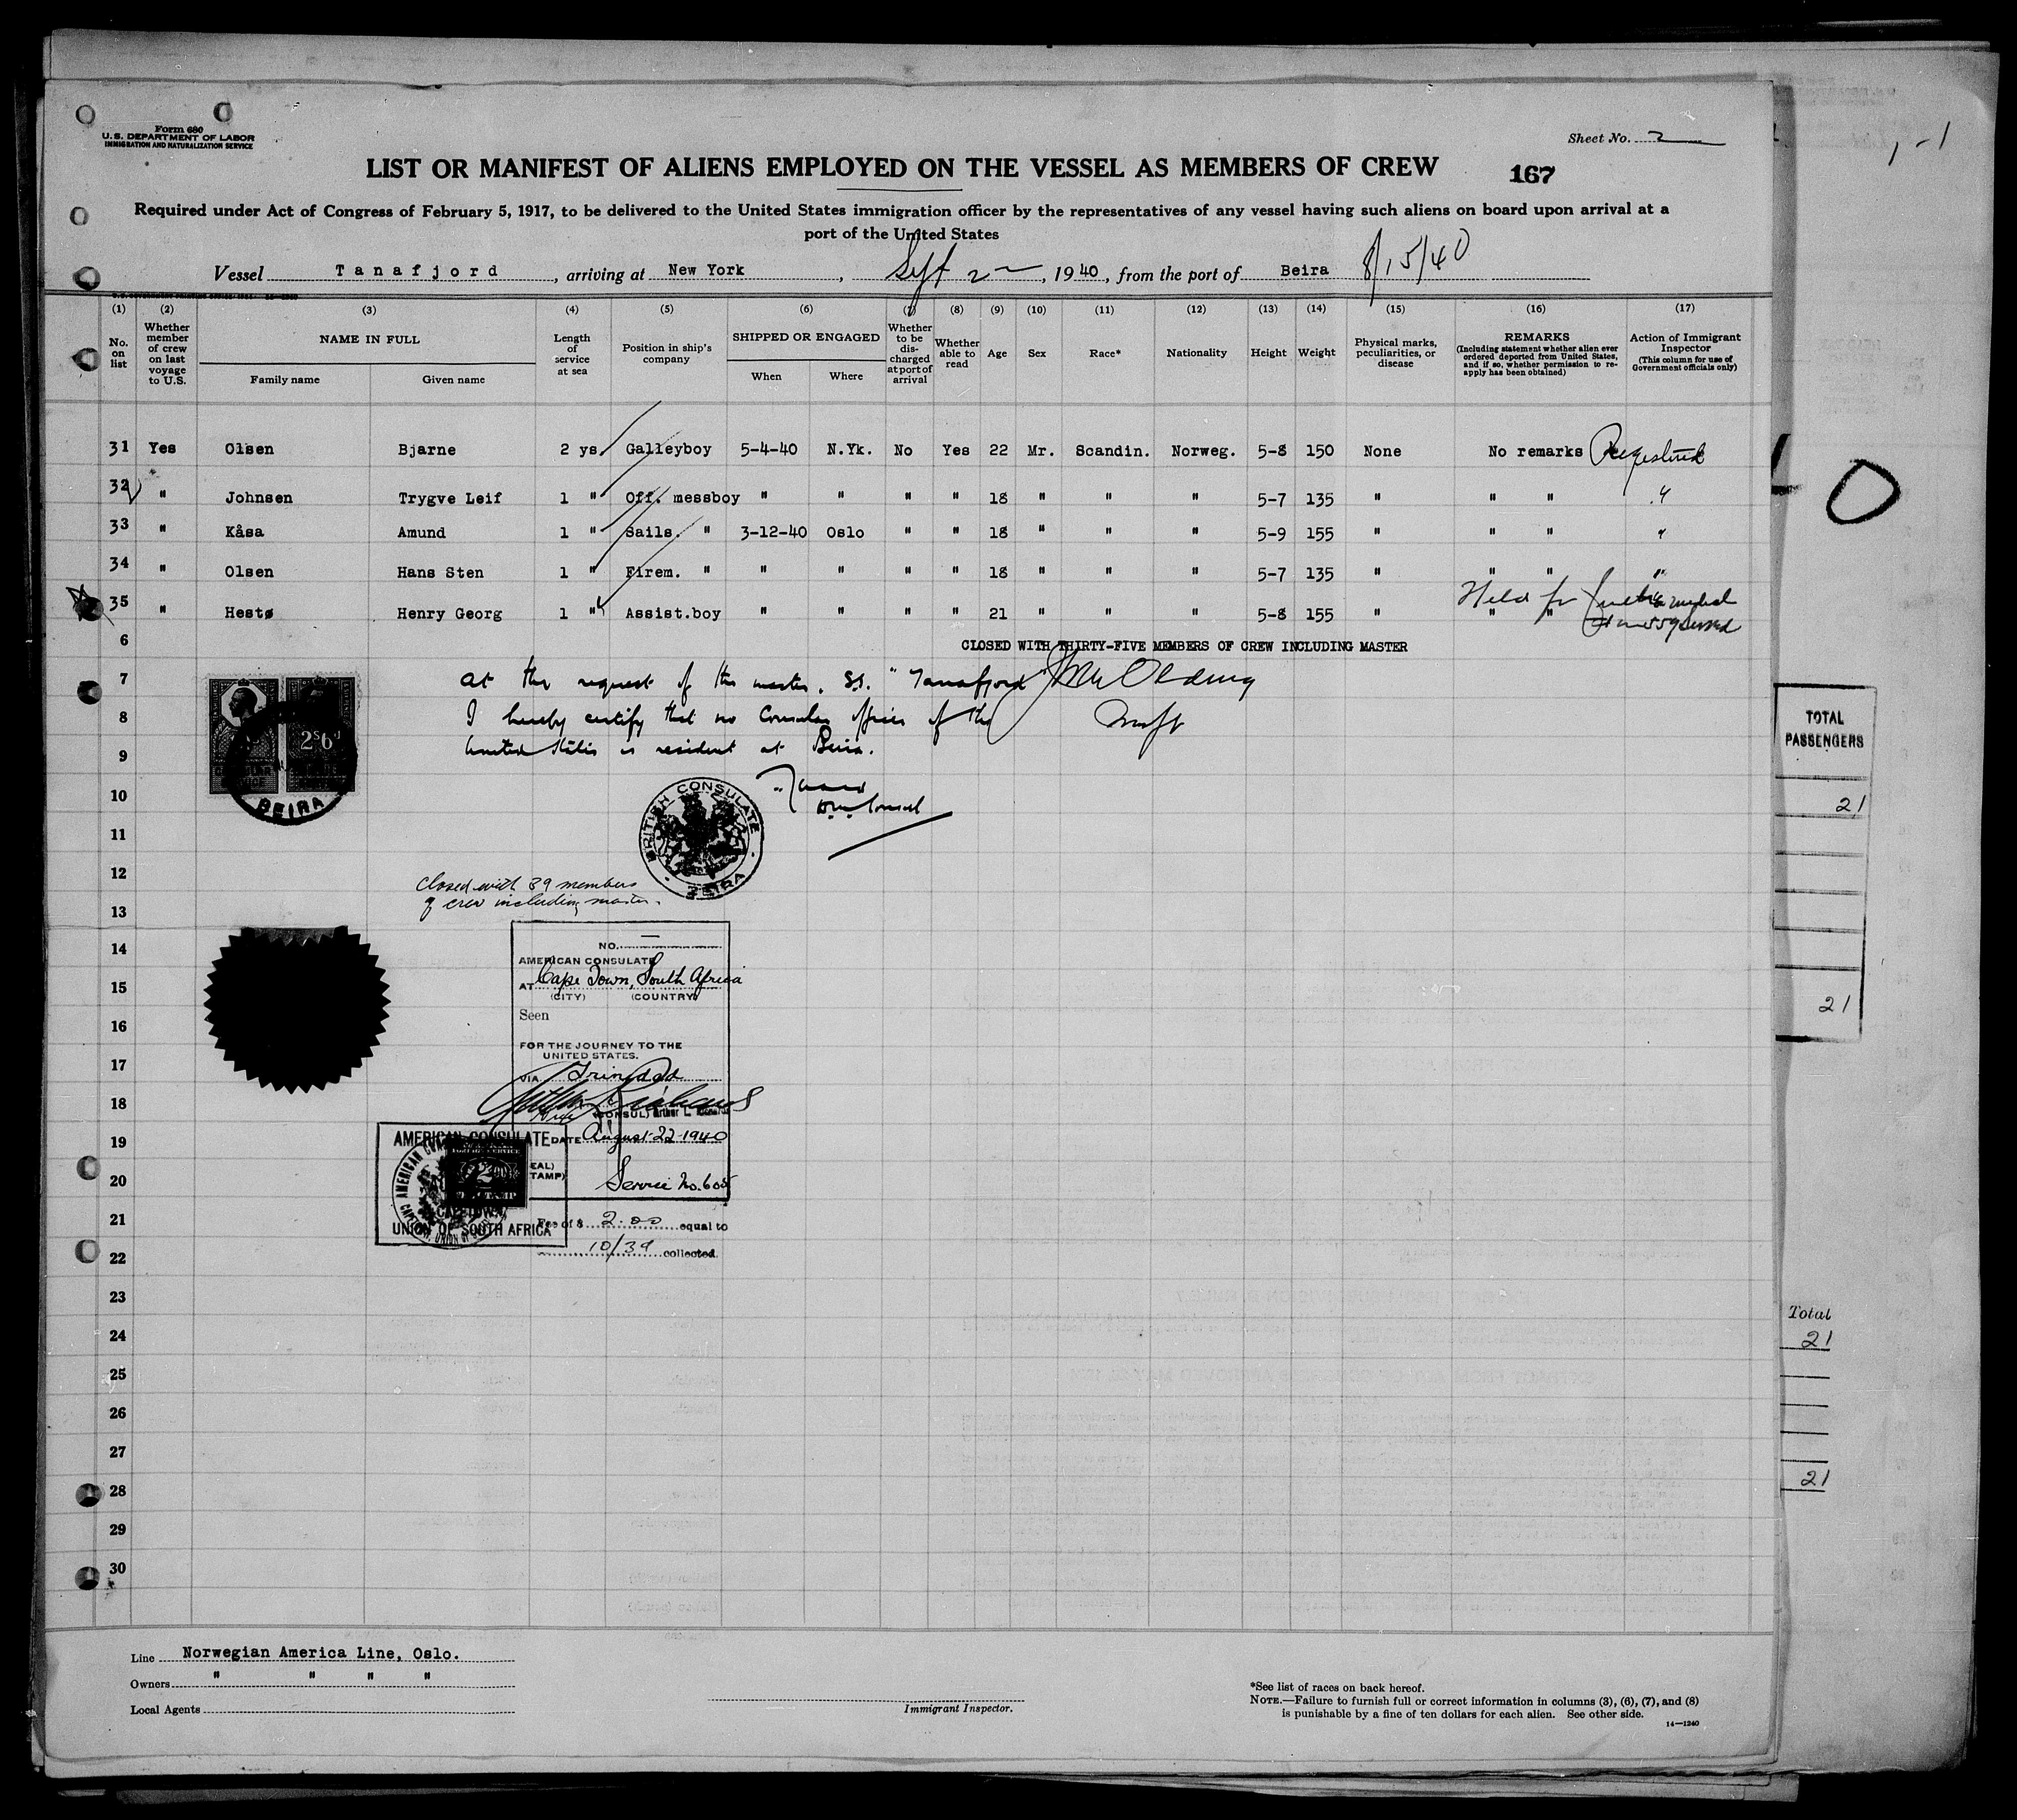 Form 680
U.S. DEPARTMENT OF LABOR
IMMIGRATION AND NATURALIZATION SERVICE
Sheet No. 2
LIST OR MANIFEST OF ALIENS EMPLOYED ON THE VESSEL AS MEMBERS OF CREW
167
Required under Act of Congress of February 5, 1917, to be delivered to the United States immigration officer by the representatives of any vessel having such aliens on board upon arrival at a
port of the United States
Vessel Tanafjord, arriving at New York, Sept 2, 1940, from the port of Beira 8/15/40
(1) (2) (3) (4) (5) (6) (7) (8) (9) (10) (11) (12) (13) (14) (15) (16) (17)
No. on list
Whether member of crew on last voyage to U.S.
NAME IN FULL
Family name
Given name
Length of service at sea
Position in ship's company
SHIPPED OR ENGAGED
When
Where
Whether to be discharged at port of arrival
Whether able to read
Age
Sex
Race*
Nationality
Height
Weight
Physical marks, peculiarities, or disease
REMARKS
(Including statement whether alien ever ordered deported from United States, and if so, whether permission to re-apply has been obtained)
Action of Immigrant Inspector
(This column for use of Government officials only)
31 Yes Olsen Bjarne 2 ys. Galleyboy 5-4-40 N.Yk. No Yes 22 Mr. Scandin. Norweg. 5-8 150 None No remarks Registered
32 " Johnsen Trygve Leif 1 " Off. messboy " " " " 18 " " " 5-7 135 " " " "
33 " Kåsa Amund 1 " Sails. " 3-12-40 Oslo " " 18 " " " 5-9 155 " " " "
34 " Olsen Hans Sten 1 " Firem. " " " " " 18 " " " 5-7 135 " " " "
35 " Hestø Henry Georg 1 " Assist.boy " " " " 21 " " " 5-8 155 " " "
Held for
6 CLOSED WITH THIRTY-FIVE MEMBERS OF CREW INCLUDING MASTER
7 At the request of the master, S.S. "Tanafjord"
8 I hereby certify that no Consular officer of the
9 United States is resident at Beira.
2s6d
BEIRA
10
BRITISH CONSULATE
BEIRA
11
12 Closed with 39 members
of crew including master.
13
14 NO.
AMERICAN CONSULATE
15 AT Cape Town, South Africa
(CITY) (COUNTRY)
16 Seen
FOR THE JOURNEY TO THE
UNITED STATES.
17 VIA Trinidad
18 (CONSUL) Arthur L. Richards
19 DATE August 22 1940
AMERICAN CONSULATE
20 Service No. 605
CAPETOWN
UNION OF SOUTH AFRICA
21 Fee of $ 2.00 equal to
22 10/39 collected.
23
24
25
26
27
28
29
30
Line Norwegian America Line, Oslo.
Owners " " " "
Local Agents
Immigrant Inspector.
*See list of races on back hereof.
NOTE.—Failure to furnish full or correct information in columns (3), (6), (7), and (8)
is punishable by a fine of ten dollars for each alien. See other side.
14—1240
TOTAL
PASSENGERS
21
21
Total
21
21